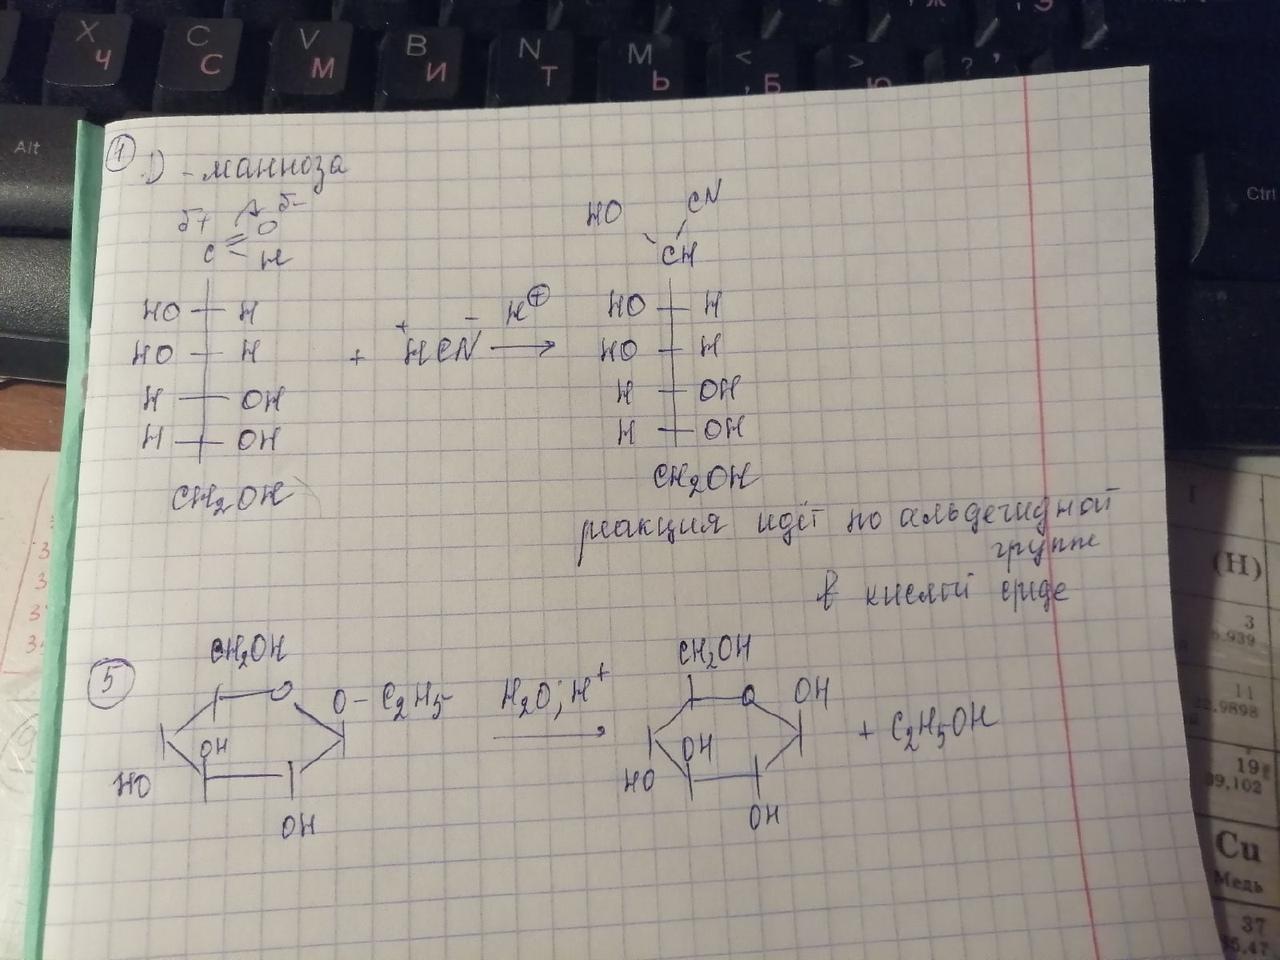 X Ч
C С
V М
B И
N Т
M Ь
< , Б
> Ю
? '
Alt
Ctrl
4 D - манноза
δ+ O δ-
C H
HO H
HO H
H OH
H OH
CH2OH
+ H+CN- H⊕
HO CN
CH
HO H
HO H
H OH
H OH
CH2OH
реакция идёт по альдегидной
группе
в кислой среде
5
CH2OH
O O - C2H5
OH
HO
OH
H2O; H+
CH2OH
O OH
OH
HO
OH
+ C2H5OH
I
(H)
3
6.939
11
22.9898
19
39,102
Cu
Медь
37
85.47